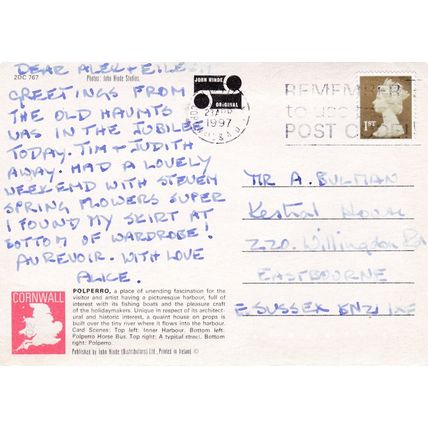 2DC 767
Photos: John Hinde Studios.
DEAR ALEX + EILEEN
GREETINGS FROM
THE OLD HAUNTS
WAS IN THE JUBILEE
TODAY. TIM + JUDITH
AWAY. HAD A LOVELY
WEEKEND WITH STEVEN
SPRING FLOWERS SUPER
I FOUND MY SKIRT AT
BOTTOM OF WARDROBE!
AU REVOIR. WITH LOVE
ALICE.
CORNWALL
POLPERRO, a place of unending fascination for the
visitor and artist having a picturesque harbour, full of
interest with its fishing boats and the pleasure craft
of the holidaymakers. Unique in respect of its architec-
tural and historic interest, a quaint house on props is
built over the tiny river where it flows into the harbour.
Card Scenes: Top left: Inner Harbour. Bottom left:
Polperro Horse Bus. Top right: A typical street. Bottom
right: Polperro.
Published by John Hinde (Distributors) Ltd., Printed in Ireland ©
JOHN HINDE
ORIGINAL
1997
REMEMBER
to use
POST CODE
1ST
MR A. BULMAN
Kestral House
220. Willingdon Rd
EASTBOURNE
E. SUSSEX